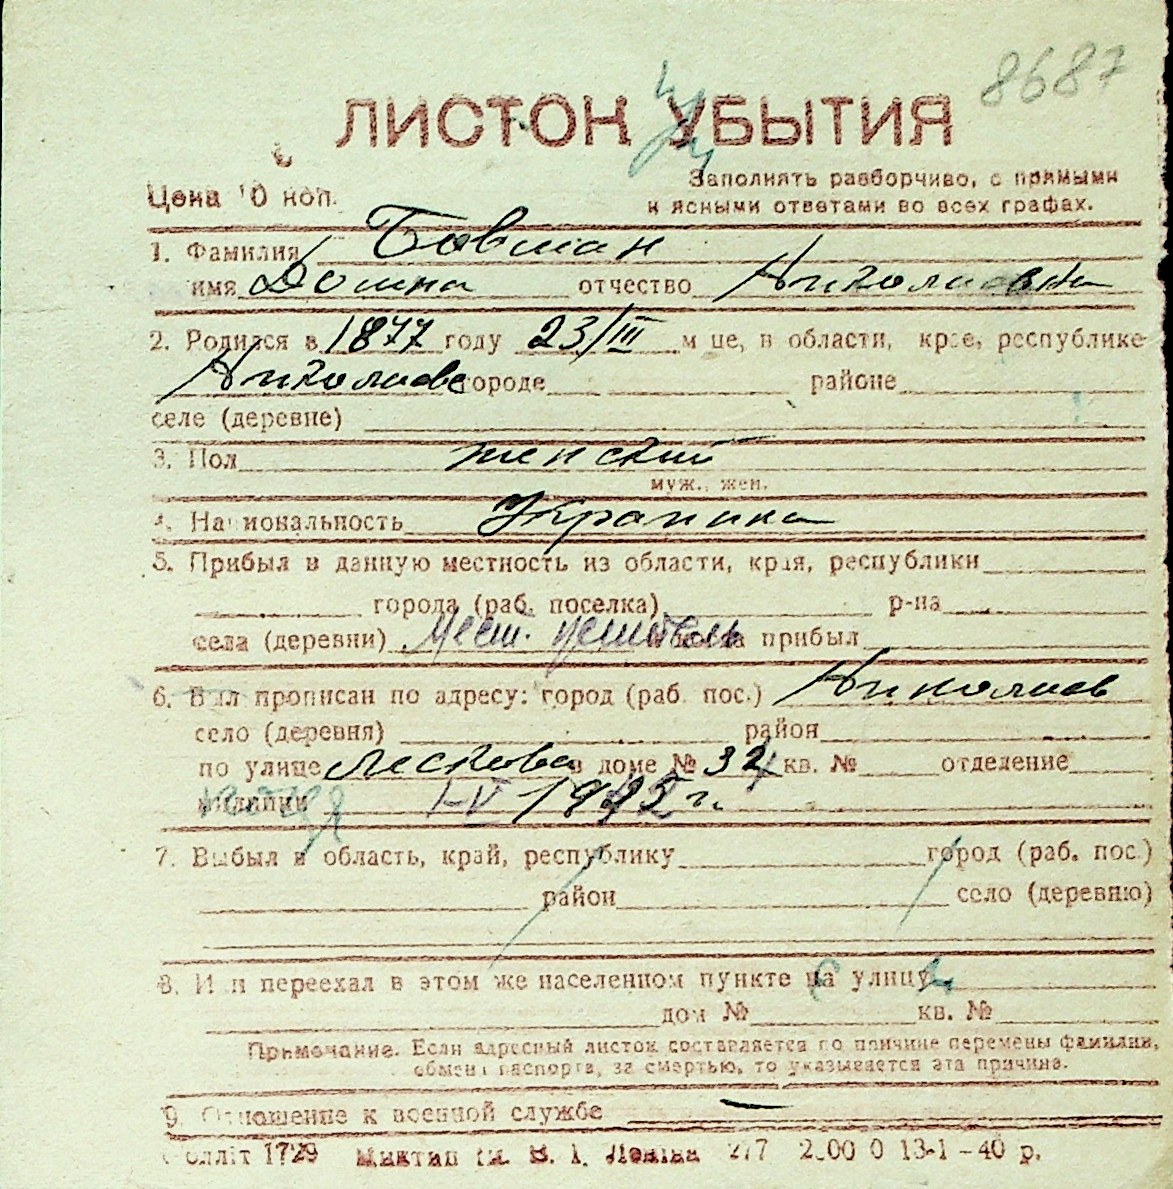 8687
ЛИСТОК УБЫТИЯ
Цена 10 коп.
Заполнять разборчиво, с прямыми
и ясными ответами во всех графах.
1. Фамилия Бовман
имя Домна отчество Николаевна
2. Родился в 1877 году 23/III м-це, в области, крае, республике
Николаеве городе районе
селе (деревне)
3. Пол женский
муж., жен.
4. Национальность Украинка
5. Прибыл в данную местность из области, края, республики
города (раб. поселка) р-на
села (деревни) Мест. житель прибыл
6. Был прописан по адресу: город (раб. пос.) Николаев
село (деревня) район
по улице Лескова в доме № 32 кв. № отделение
милиции I-V 1945 г.
7. Выбыл в область, край, республику город (раб. пос.)
район село (деревню)
8. Или переехал в этом же населенном пункте на улицу
дом № кв. №
Примечание. Если адресный листок составляется по причине перемены фамилии,
обмена паспорта, за смертью, то указывается эта причина.
9. Отношение к военной службе —
1729 В. І. Леніна 277 13-1-40 р.